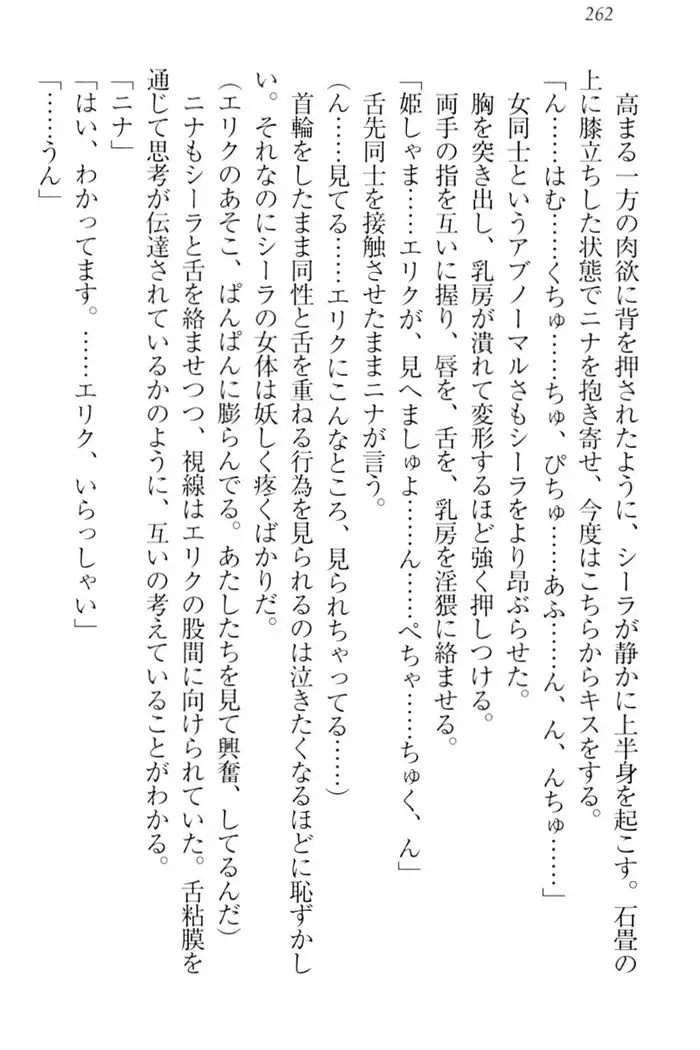 262
高まる一方の肉欲に背を押されたように、シーラが静かに上半身を起こす。石畳の
上に膝立ちした状態でニナを抱き寄せ、今度はこちらからキスをする。
「ん……はむ……くちゅ……ちゅ、ぴちゅ……あふ……ん、ん、んちゅ……」
女同士というアブノーマルさもシーラをより昂ぶらせた。
胸を突き出し、乳房が潰れて変形するほど強く押しつける。
両手の指を互いに握り、唇を、舌を、乳房を淫猥に絡ませる。
「姫しゃま……エリクが、見へましゅよ……ん……ぺちゃ……ちゅく、ん」
舌先同士を接触させたままニナが言う。
(ん……見てる……エリクにこんなところ、見られちゃってる……)
首輪をしたまま同性と舌を重ねる行為を見られるのは泣きたくなるほどに恥ずかし
い。それなのにシーラの女体は妖しく疼くばかりだ。
(エリクのあそこ、ぱんぱんに膨らんでる。あたしたちを見て興奮、してるんだ)
ニナもシーラと舌を絡ませつつ、視線はエリクの股間に向けられていた。舌粘膜を
通じて思考が伝達されているかのように、互いの考えていることがわかる。
「ニナ」
「はい、わかってます。……エリク、いらっしゃい」
「……うん」